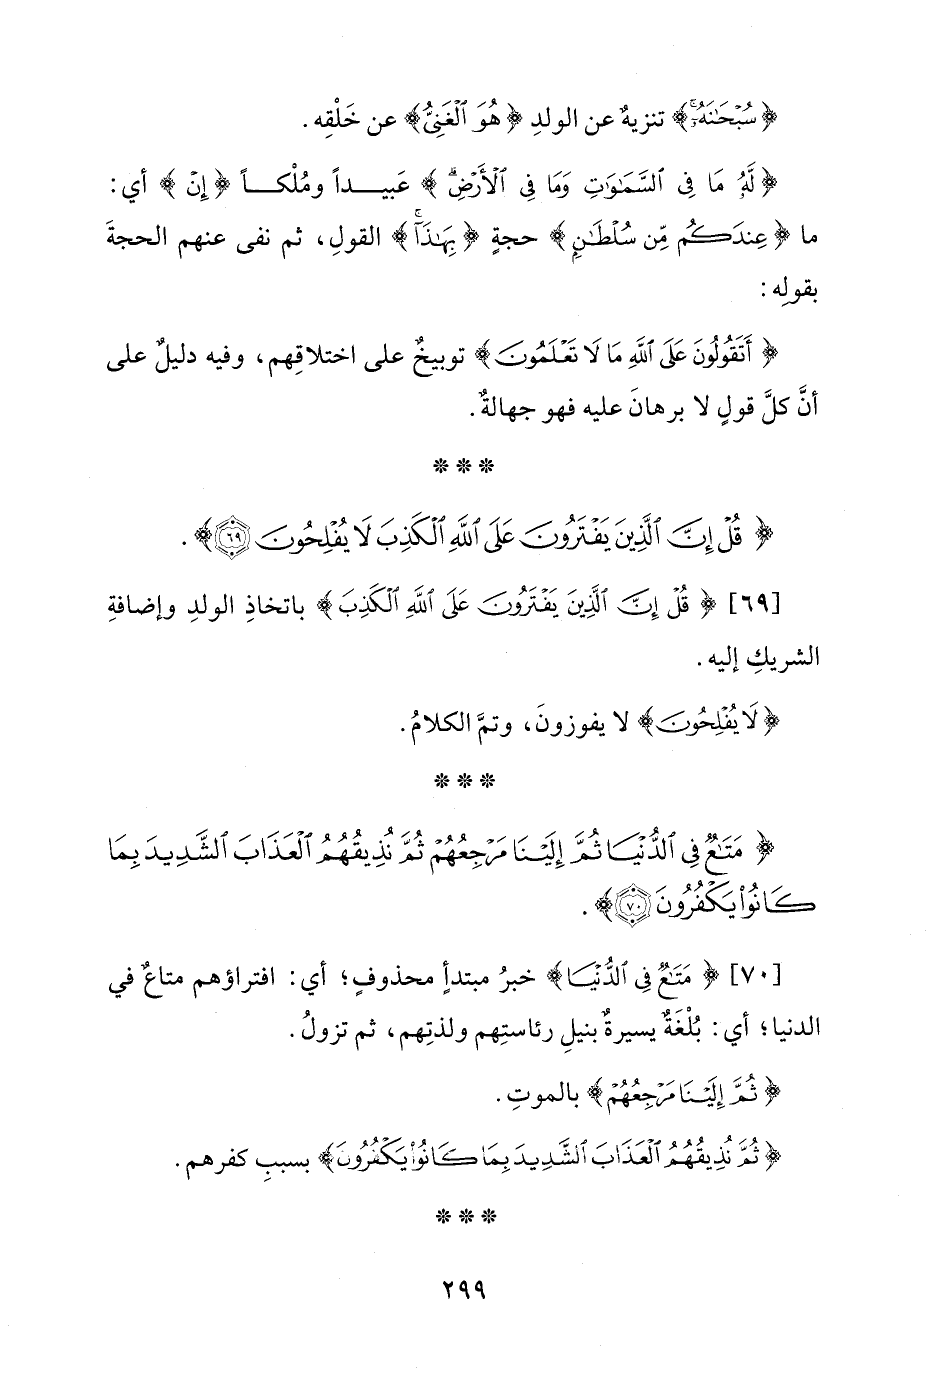 ﴿سُبْحَانَهُ﴾ تنزيهٌ عن الولدِ ﴿هُوَ الْغَنِيُّ﴾ عن خَلْقِه .
﴿لَهُ مَا فِي السَّمَاوَاتِ وَمَا فِي الْأَرْضِ﴾ عَبيــداً ومُلْكــاً ﴿إِنْ﴾ أي :
ما ﴿عِندَكُم مِّن سُلْطَانٍ﴾ حجةٍ ﴿بِهَذَا﴾ القولِ، ثم نفى عنهم الحجةَ
بقولِه :
﴿أَتَقُولُونَ عَلَى اللَّهِ مَا لَا تَعْلَمُونَ﴾ توبيخٌ على اختلاقِهم، وفيه دليلٌ على
أنَّ كلَّ قولٍ لا برهانَ عليه فهو جهالةٌ.
* * *
﴿قُلْ إِنَّ الَّذِينَ يَفْتَرُونَ عَلَى اللَّهِ الْكَذِبَ لَا يُفْلِحُونَ ٦٩﴾.
[٦٩] ﴿قُلْ إِنَّ الَّذِينَ يَفْتَرُونَ عَلَى اللَّهِ الْكَذِبَ﴾ باتخاذِ الولدِ وإضافةِ
الشريكِ إليه.
﴿لَا يُفْلِحُونَ﴾ لا يفوزونَ، وتمَّ الكلامُ.
* * *
﴿مَتَاعٌ فِي الدُّنْيَا ثُمَّ إِلَيْنَا مَرْجِعُهُمْ ثُمَّ نُذِيقُهُمُ الْعَذَابَ الشَّدِيدَ بِمَا
كَانُوا يَكْفُرُونَ ٧٠﴾.
[٧٠] ﴿مَتَاعٌ فِي الدُّنْيَا﴾ خبرُ مبتدأٍ محذوفٍ؛ أي: افتراؤهم متاعٌ في
الدنيا؛ أي: بُلْغَةٌ يسيرةٌ بنيلِ رئاستِهم ولذتِهم، ثم تزولُ.
﴿ثُمَّ إِلَيْنَا مَرْجِعُهُمْ﴾ بالموتِ.
﴿ثُمَّ نُذِيقُهُمُ الْعَذَابَ الشَّدِيدَ بِمَا كَانُوا يَكْفُرُونَ﴾ بسببِ كفرهم.
* * *
٢٩٩